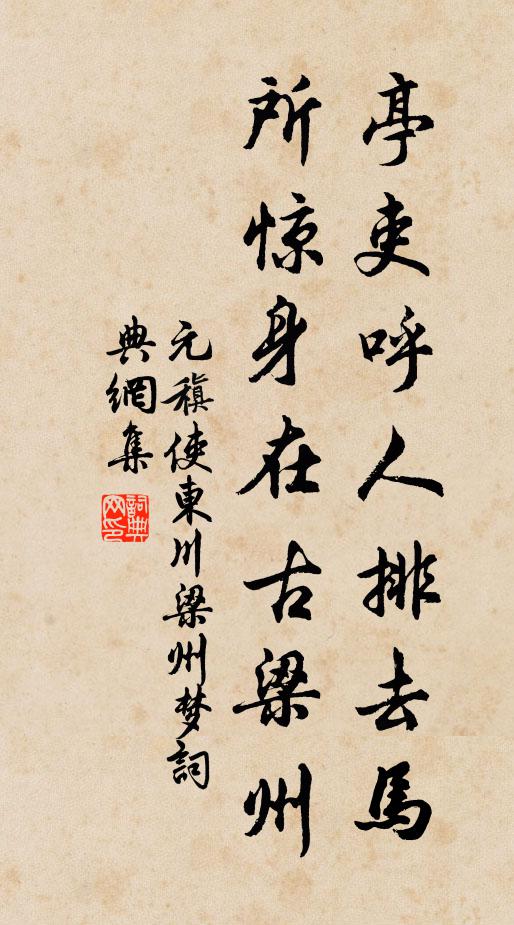 亭吏呼人排去馬
所惊身在古梁州
元稹使東川梁州梦詞
典網集
詞典網印